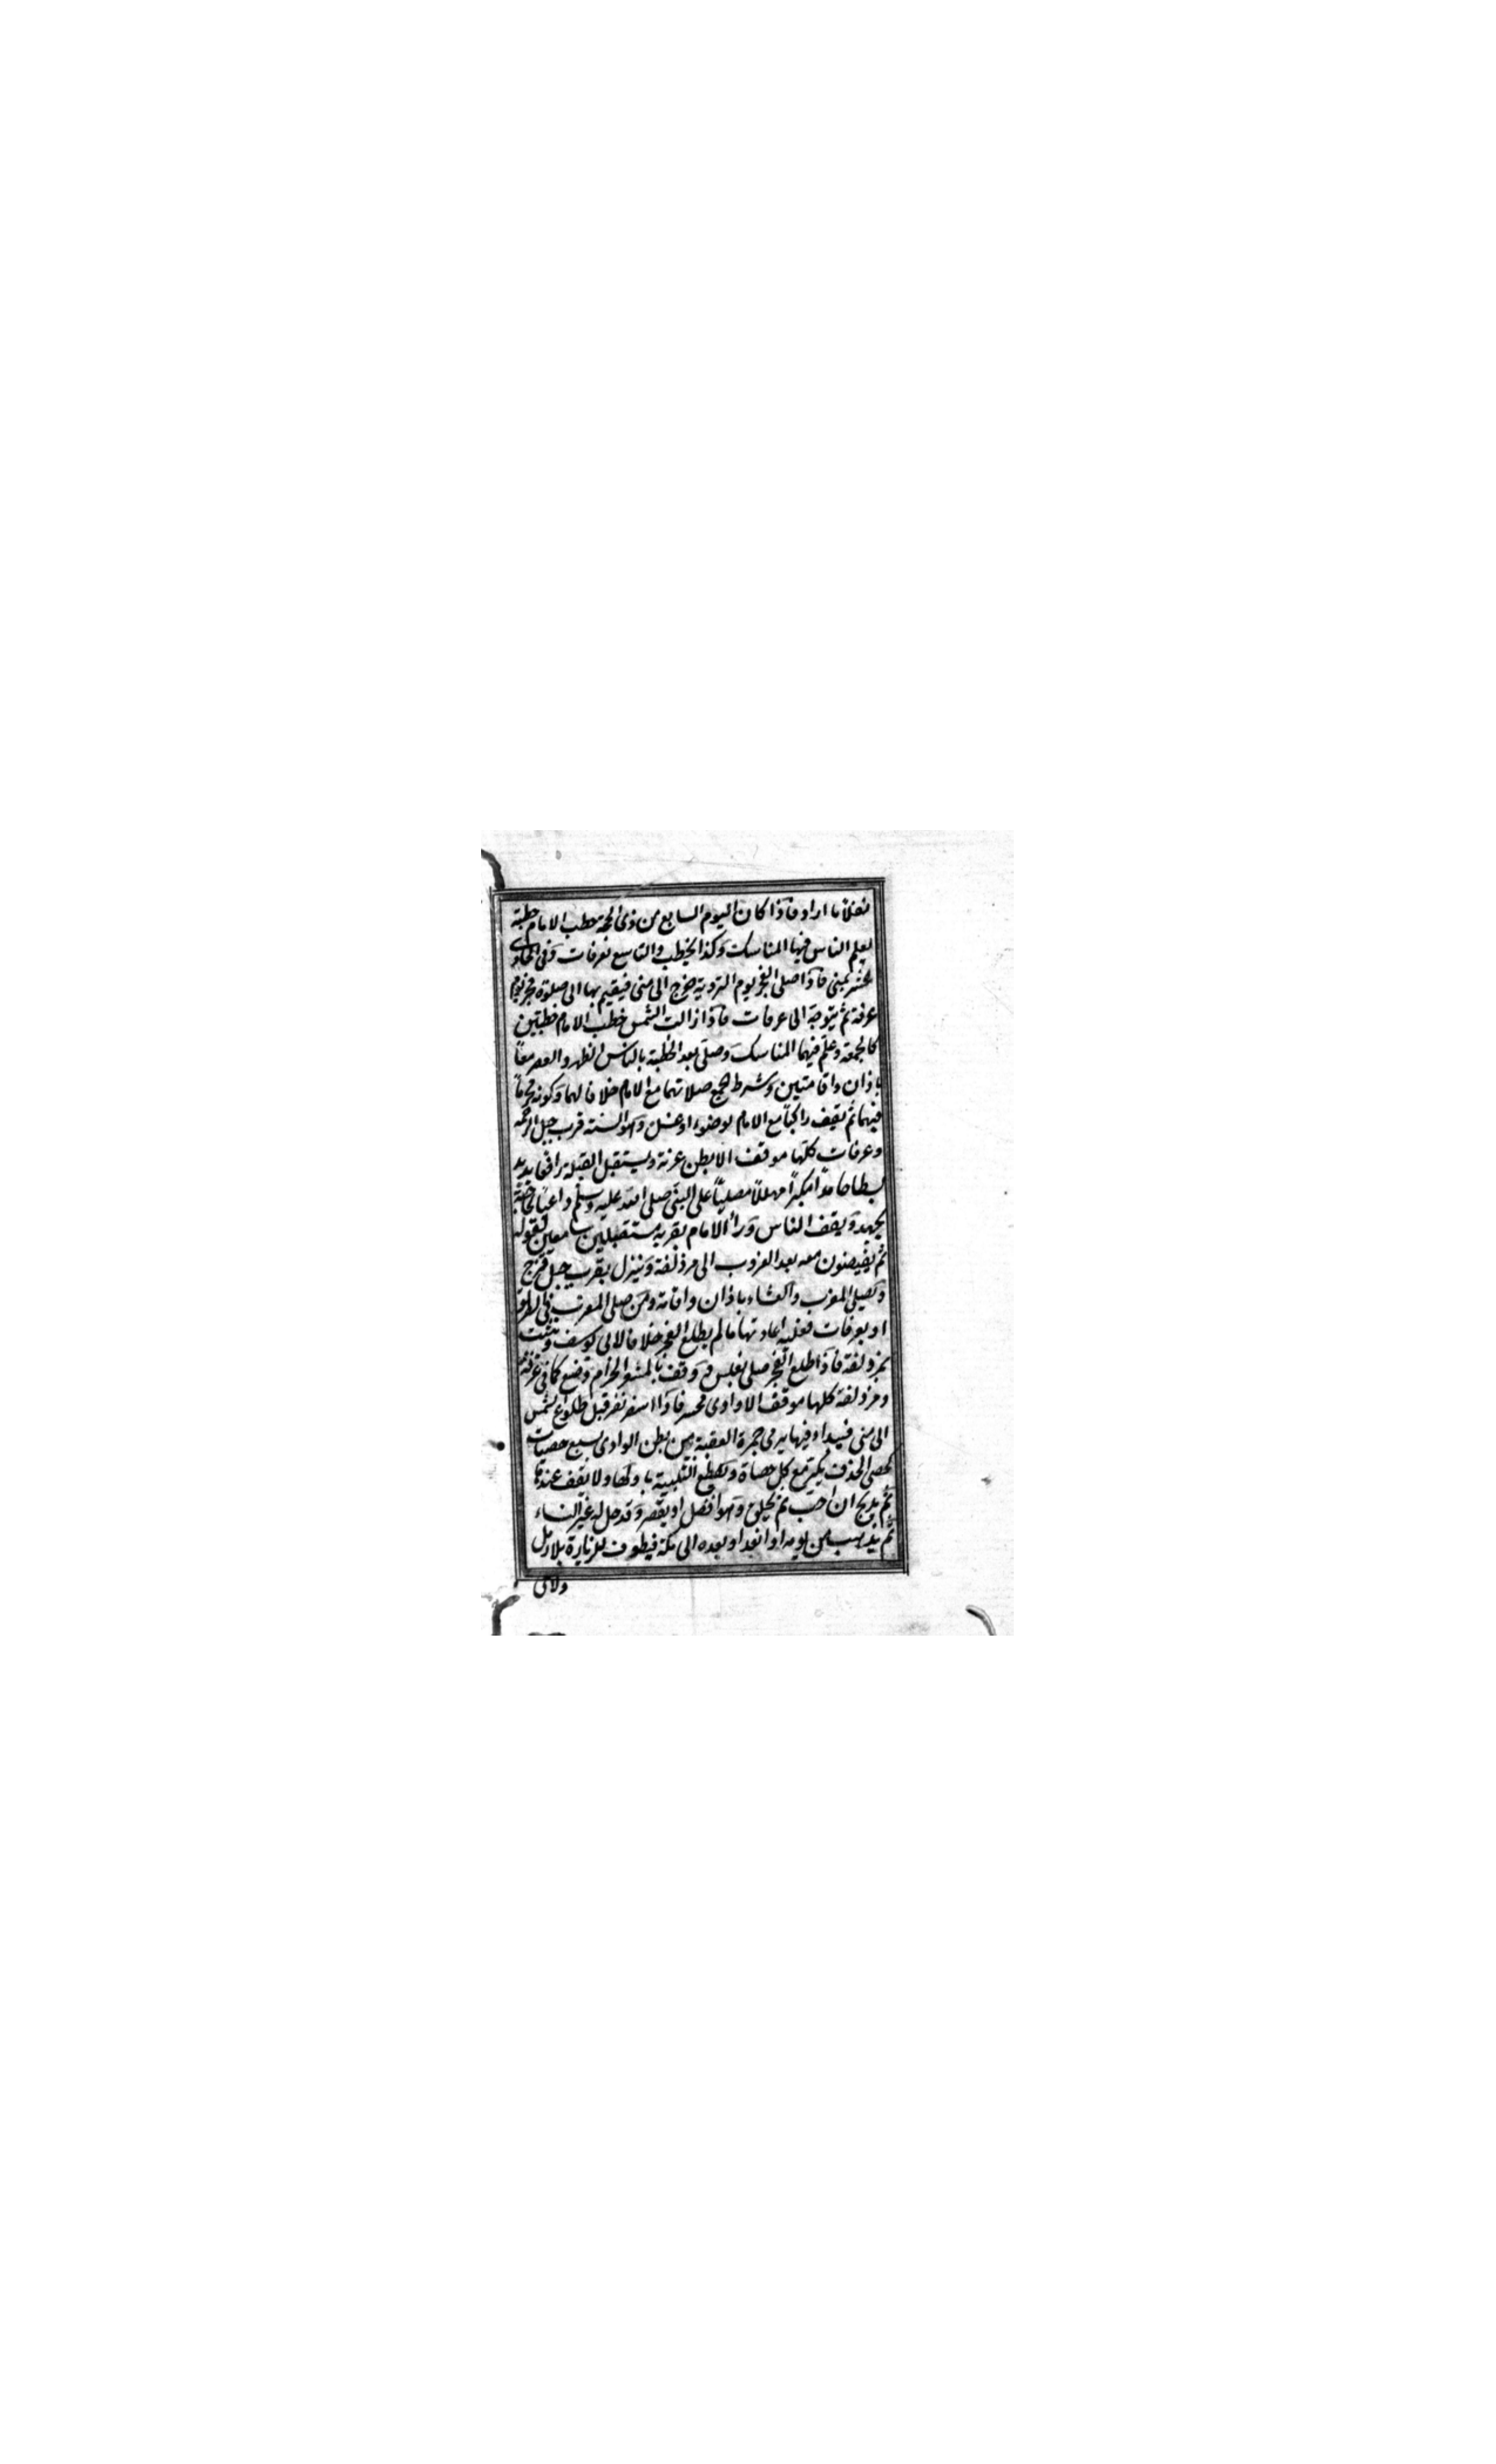 نفلا ما اراد فاذا كان اليوم السابع من ذى الحجة خطب الامام خطبة
يعلم الناس فيها المناسك وكذا يخطب فى التاسع بعرفات وفى الحادى
عشر بمنى فاذا صلى الفجر يوم التروية خرج الى منى فيقيم بها الى صلوة فجر يوم
عرفة ثم يتوجه الى عرفات فاذا زالت الشمس خطب الامام خطبتين
كالجمعة وعلم فيهما المناسك وصلى بعد الخطبة بالناس الظهر والعصر معا
باذان واقامتين وشرط الجمع صلاتهما مع الامام خلافا لهما وكونه محرما
فيهما ثم يقف راكبا مع الامام بوضوء او غسل وهو السنة قرب جبل الرحمة
وعرفات كلها موقف الا بطن عرنة ويستقبل القبلة رافعا يديه
بسطا حامدا مكبرا مهللا مصليا على النبى صلى الله عليه وسلم داعيا لحاجته
بجهد ويقف الناس وراء الامام بقربه مستقبلين سامعين لقوله
ثم يفيضون معه بعد الغروب الى مزدلفة وينزل بقرب جبل قزح
ويصلى المغرب والعشاء باذان واقامة ومن صلى المغرب فى الطريق
او بعرفات فعليه اعادتها ما لم يطلع الفجر خلافا لابى يوسف ويبيت
بمزدلفة فاذا طلع الفجر صلى بغلس ووقف بالمشعر الحرام وصنع كما فى عرفة
ومزدلفة كلها موقف الا وادى محسر فاذا اسفر نفر قبل طلوع الشمس
الى منى فيبدأ فيها برمى جمرة العقبة من بطن الوادى بسبع حصيات
كحصى الخذف يكبر مع كل حصاة ويقطع التلبية باولها ولا يقف عندها
ثم يذبح ان احب ثم يحلق وهو افضل او يقصر وقد حل له غير النساء
ثم يذهب من يومه او الغد او بعده الى مكة فيطوف للزيارة بلا رمل
ولا سعى